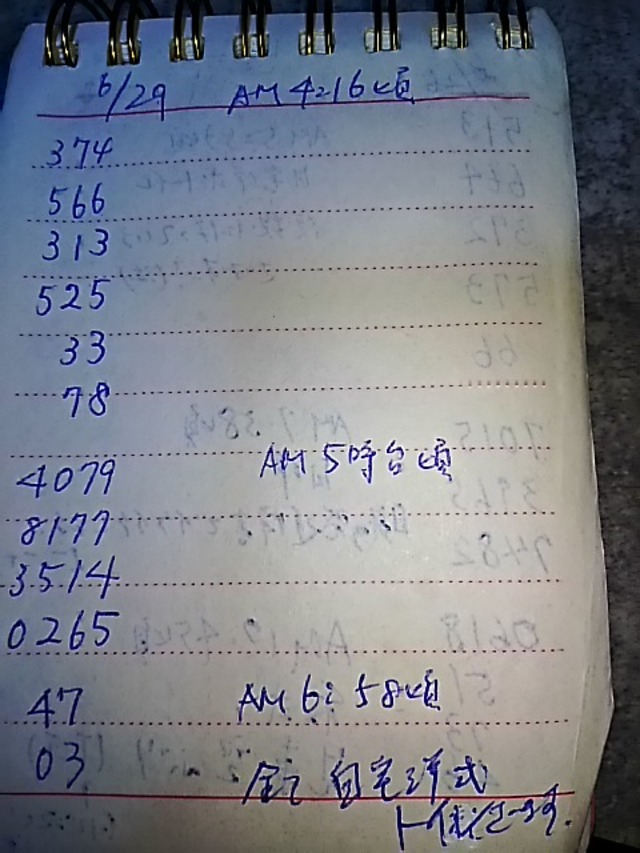 6/29 AM 4:16頃
374
566
313
525
33
78
AM 5時台頃
4079
8177
3514
0265
47 AM 6:58頃
03 全て 自宅洋式